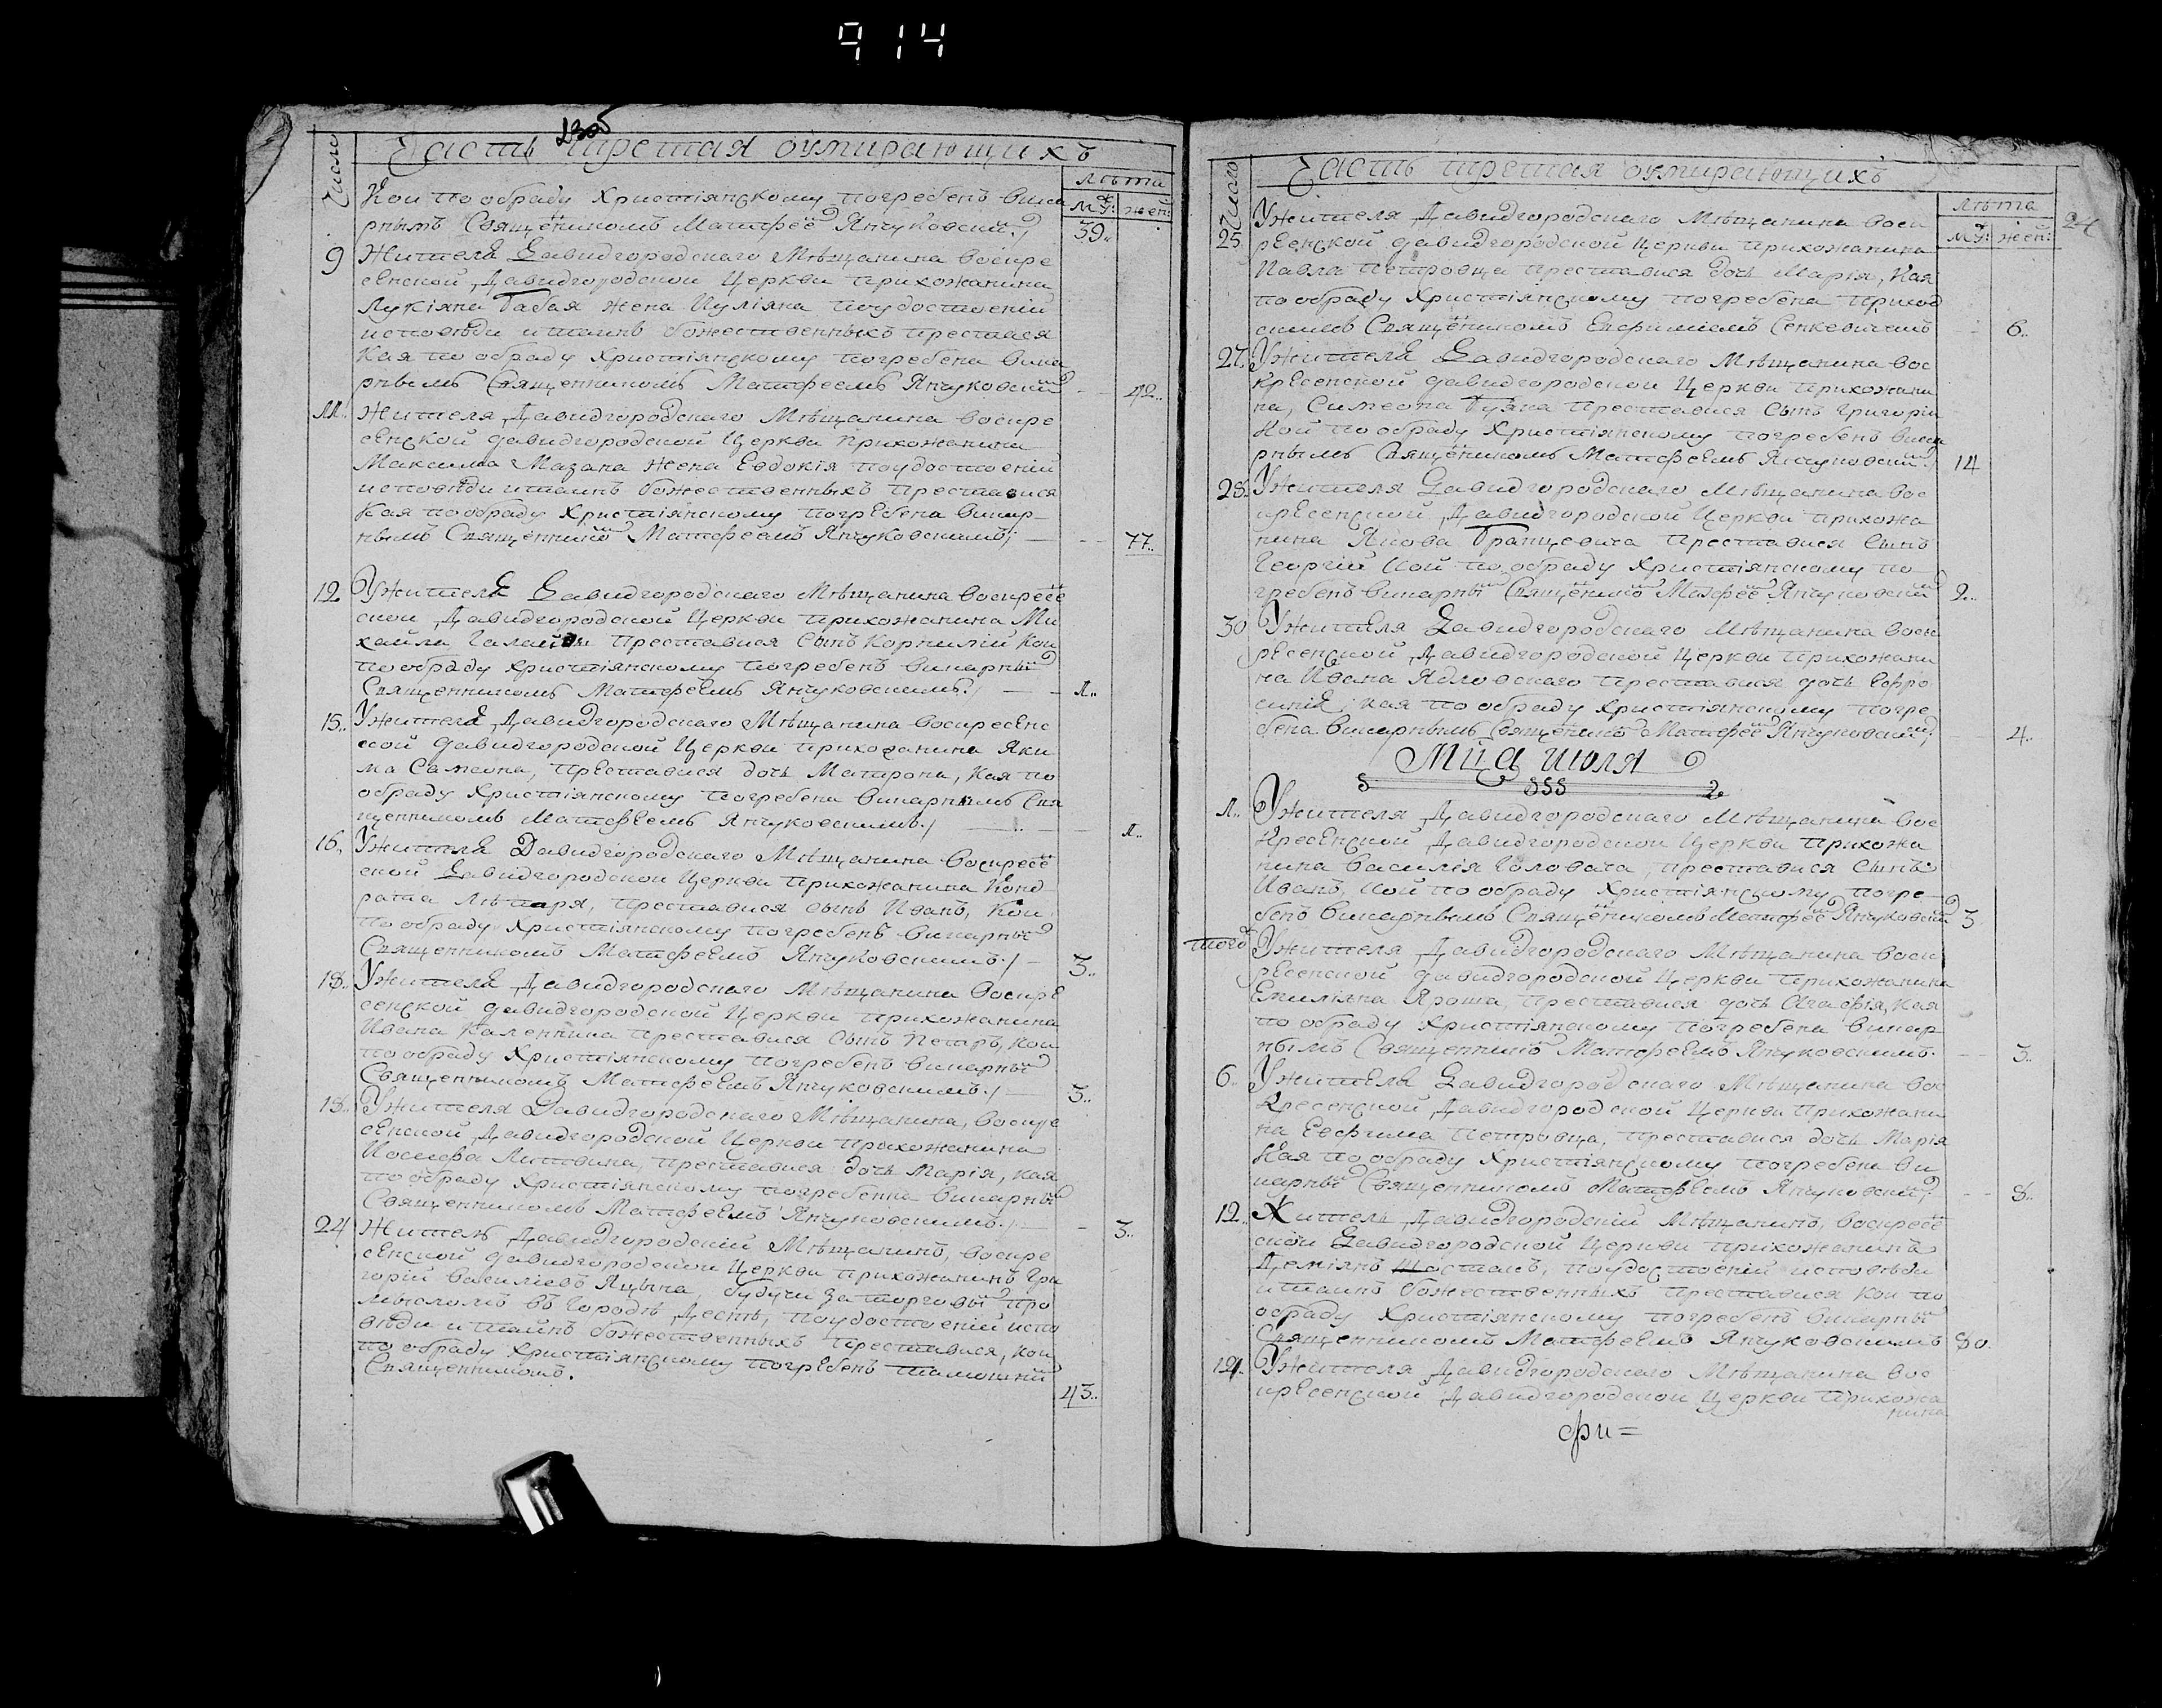 914
Число
Часть третая оумирающихъ
лѣта
му: жен:
Кои по обряду Христіянскому погребенъ вика
рнымъ Священикомъ Матфее Янчуковский
39..
9 Жителя Давидгородскаго Мѣщанина воскре
сенской Давидгородской Церкви прихожанина
Лукіяна Бабая жена Иуліяна поудостоеніи
исповѣди итаинъ божественныхъ преставися
Кая по обряду христіянскому погребена вика
рнымъ Священникомъ Матфеемъ Янчуковский
42..
11.. Жителя Давидгородскаго Мѣщанина воскре
сенской Давидгородской Церкви Прихожанина
Максима Мазана жена Евдокія поудостоеніи
исповѣди итаинъ божественныхъ преставися
Кая пообряду Христіянскому погребена викар
нымъ Священнико Матфеемъ Янчуковскимъ;
77..
12 Ужителя Давидгородскаго Мѣщанина воскресе
ской Давидгородской Церкви прихожанина Ми
хайла преставися сынъ Корнилій Кои
по обряду христіянскому погребенъ викарны
Священникомъ Матфеемъ Янчуковскимъ.
1..
15.. Ужителя Давидгородскаго Мѣщанина воскресенс
кой давидгородской Церкви прихожанина Яки
ма Самсона, преставися дочь Матрона, Кая по
обряду Христіянскому погребена викарнымъ Свя
щенникомъ Матфеемъ Янчуковскимъ.
1..
16. Ужителя Давидгородскаго Мѣщанина воскресе
ской Давидгородской Церкви прихожанина Конд
рата преставися сынъ Иванъ, Кои
по обряду Христіянскому погребенъ викарны
Священникомъ Матфеемъ Янчуковскимъ.
3..
18.. Ужителя Давидгородскаго Мѣщанина воскре
сенской давидгородской Церкви прихожанина
Ивана Каленника преставися сынъ Петръ, кои
по обряду Христіянскому погребенъ викарны
Священникомъ Матфеемъ Янчуковскимъ.
3..
18.. Ужителя Давидгородскаго Мѣщанина, воскре
сенской Давидгородской Церкви прихожанина
Иосифа Литвина, преставися дочь Марія, кая
по обряду христіянскому погребенна викарны
Священникомъ Матфеемъ Янчуковскимъ.
3..
24 Житель Давидгородскій Мѣщанинъ, воскре
сенской давидгородской Церкви прихожанинъ Гри
горій Василіевъ Яцына, будучи за торговы про
мысломъ въ городѣ поудостоеніи испо
вѣди итаинъ божественныхъ преставися, кои
по обряду христіянскому погребенъ тамошни
Священникомъ.
43..
Число
Часть третая оумирающихъ
лѣта
му: жен:
24
25. Ужителя Давидгородскаго Мѣщанина воск
ресенской давидгородской Церкви прихожанина
Павла Петровца преставися дочь Марія, Кая
по обряду Христіянскому погребена приход
скимъ Священикомъ Евфиміемъ Сенкевичемъ
6..
27. Ужителя Давидгородскаго Мѣщанина вос
кресенской давидгородской Церкви прихожани
на, Симеона преставися сынъ Григорій
Кой по обряду Христіянскому погребенъ вика
рнымъ Священикомъ Матфеемъ Янчуковски
14
28. Ужителя Давидгородскаго Мѣщанина вос
кресенской Давидгородской Церкви прихожа
нина Якова Бранцевича преставися сынъ
Георгій кой по обряду христіянскому по
гребенъ викарны Священико Матфее Янчуковски
2..
30 Ужителя Давидгородскаго Мѣщанина воск
ресенской Давидгородской Церкви прихожани
на Ивана Ядловскаго преставися дочь Ефро
синія, кая по обряду христіянскому погре
бена викарнымъ Священико Матфее Янчуковски
4..
Мца июля
1.. Ужителя Давидгородскаго Мѣщанина вос
кресенской Давидгородской Церкви прихожа
нина Василія Головача, преставися сынъ
Иванъ, кой по обряду Христіянскому погре
бенъ викарнымъ Священикомъ Матфее Янчуковски
3
тогo Ужителя Давидгородскаго Мѣщанина воск
ресенской давидгородской Церкви прихожанина
Емиліяна Яроша, преставися дочь Агафія, кая
по обряду христіянскому погребена викар
нымъ Священнико Матфеемъ Янчуковскимъ.
3..
6.. Ужителя Давидгородскаго Мѣщанина вос
кресенской Давидгородской Церкви прихожани
на Евфима Петровца, преставися дочь Марія
Кая по обряду Христіянскому погребена ви
карны Священникомъ Матфеемъ Янчуковски
8..
12.. Житель Давидгородскій Мѣщанинъ, воскресе
ской Давидгородской Церкви прихожанинъ
Деміянъ поудостоеніи исповѣди
итаинъ божественныхъ преставися кои по
обряду Христіянскому погребенъ викарны
Священникомъ Матфеемъ Янчуковскимъ
80.
14. Ужителя Давидгородскаго Мѣщанина вос
кресенской Давидгородской Церкви прихожа
нина